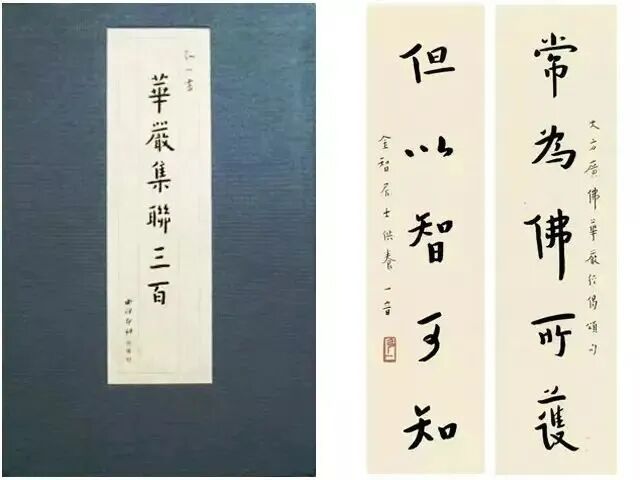 弘一書
華嚴集聯三百
西泠印社
常為佛所護
大方廣佛華嚴經偈頌句
但以智可知
金智居士供養 一音